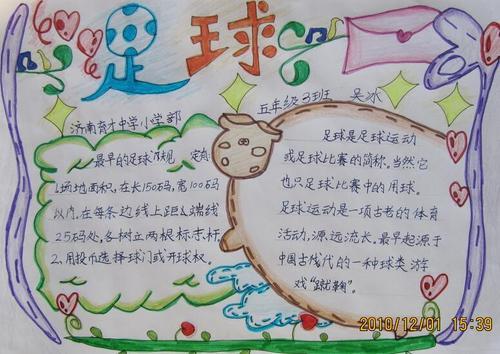 足球
济南育才中学小学部
五年级3班 吴冰
最早的足球规
1.场地面积,在长150码,宽100码
以内,在每条边线上距 端线
25码处,各树立两根标志杆
2.用投币选择球门或开球权。
足球是足球运动
或足球比赛的简称,当然它
也只足球比赛中的用球。
足球运动是一项古老的体育
活动,源远流长。最早起源于
中国古战代的一种球类游
戏“蹴鞠”。
2010/12/01 15:39